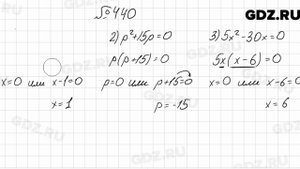 GDZ.RU
№440
2) p²+15p=0 3) 5x²-30x=0
p(p+15)=0 5x(x-6)=0
x=0 или x-1=0 p=0 или p+15=0 x=0 или x-6=0
x=1 p=-15 x=6
GDZ.RU